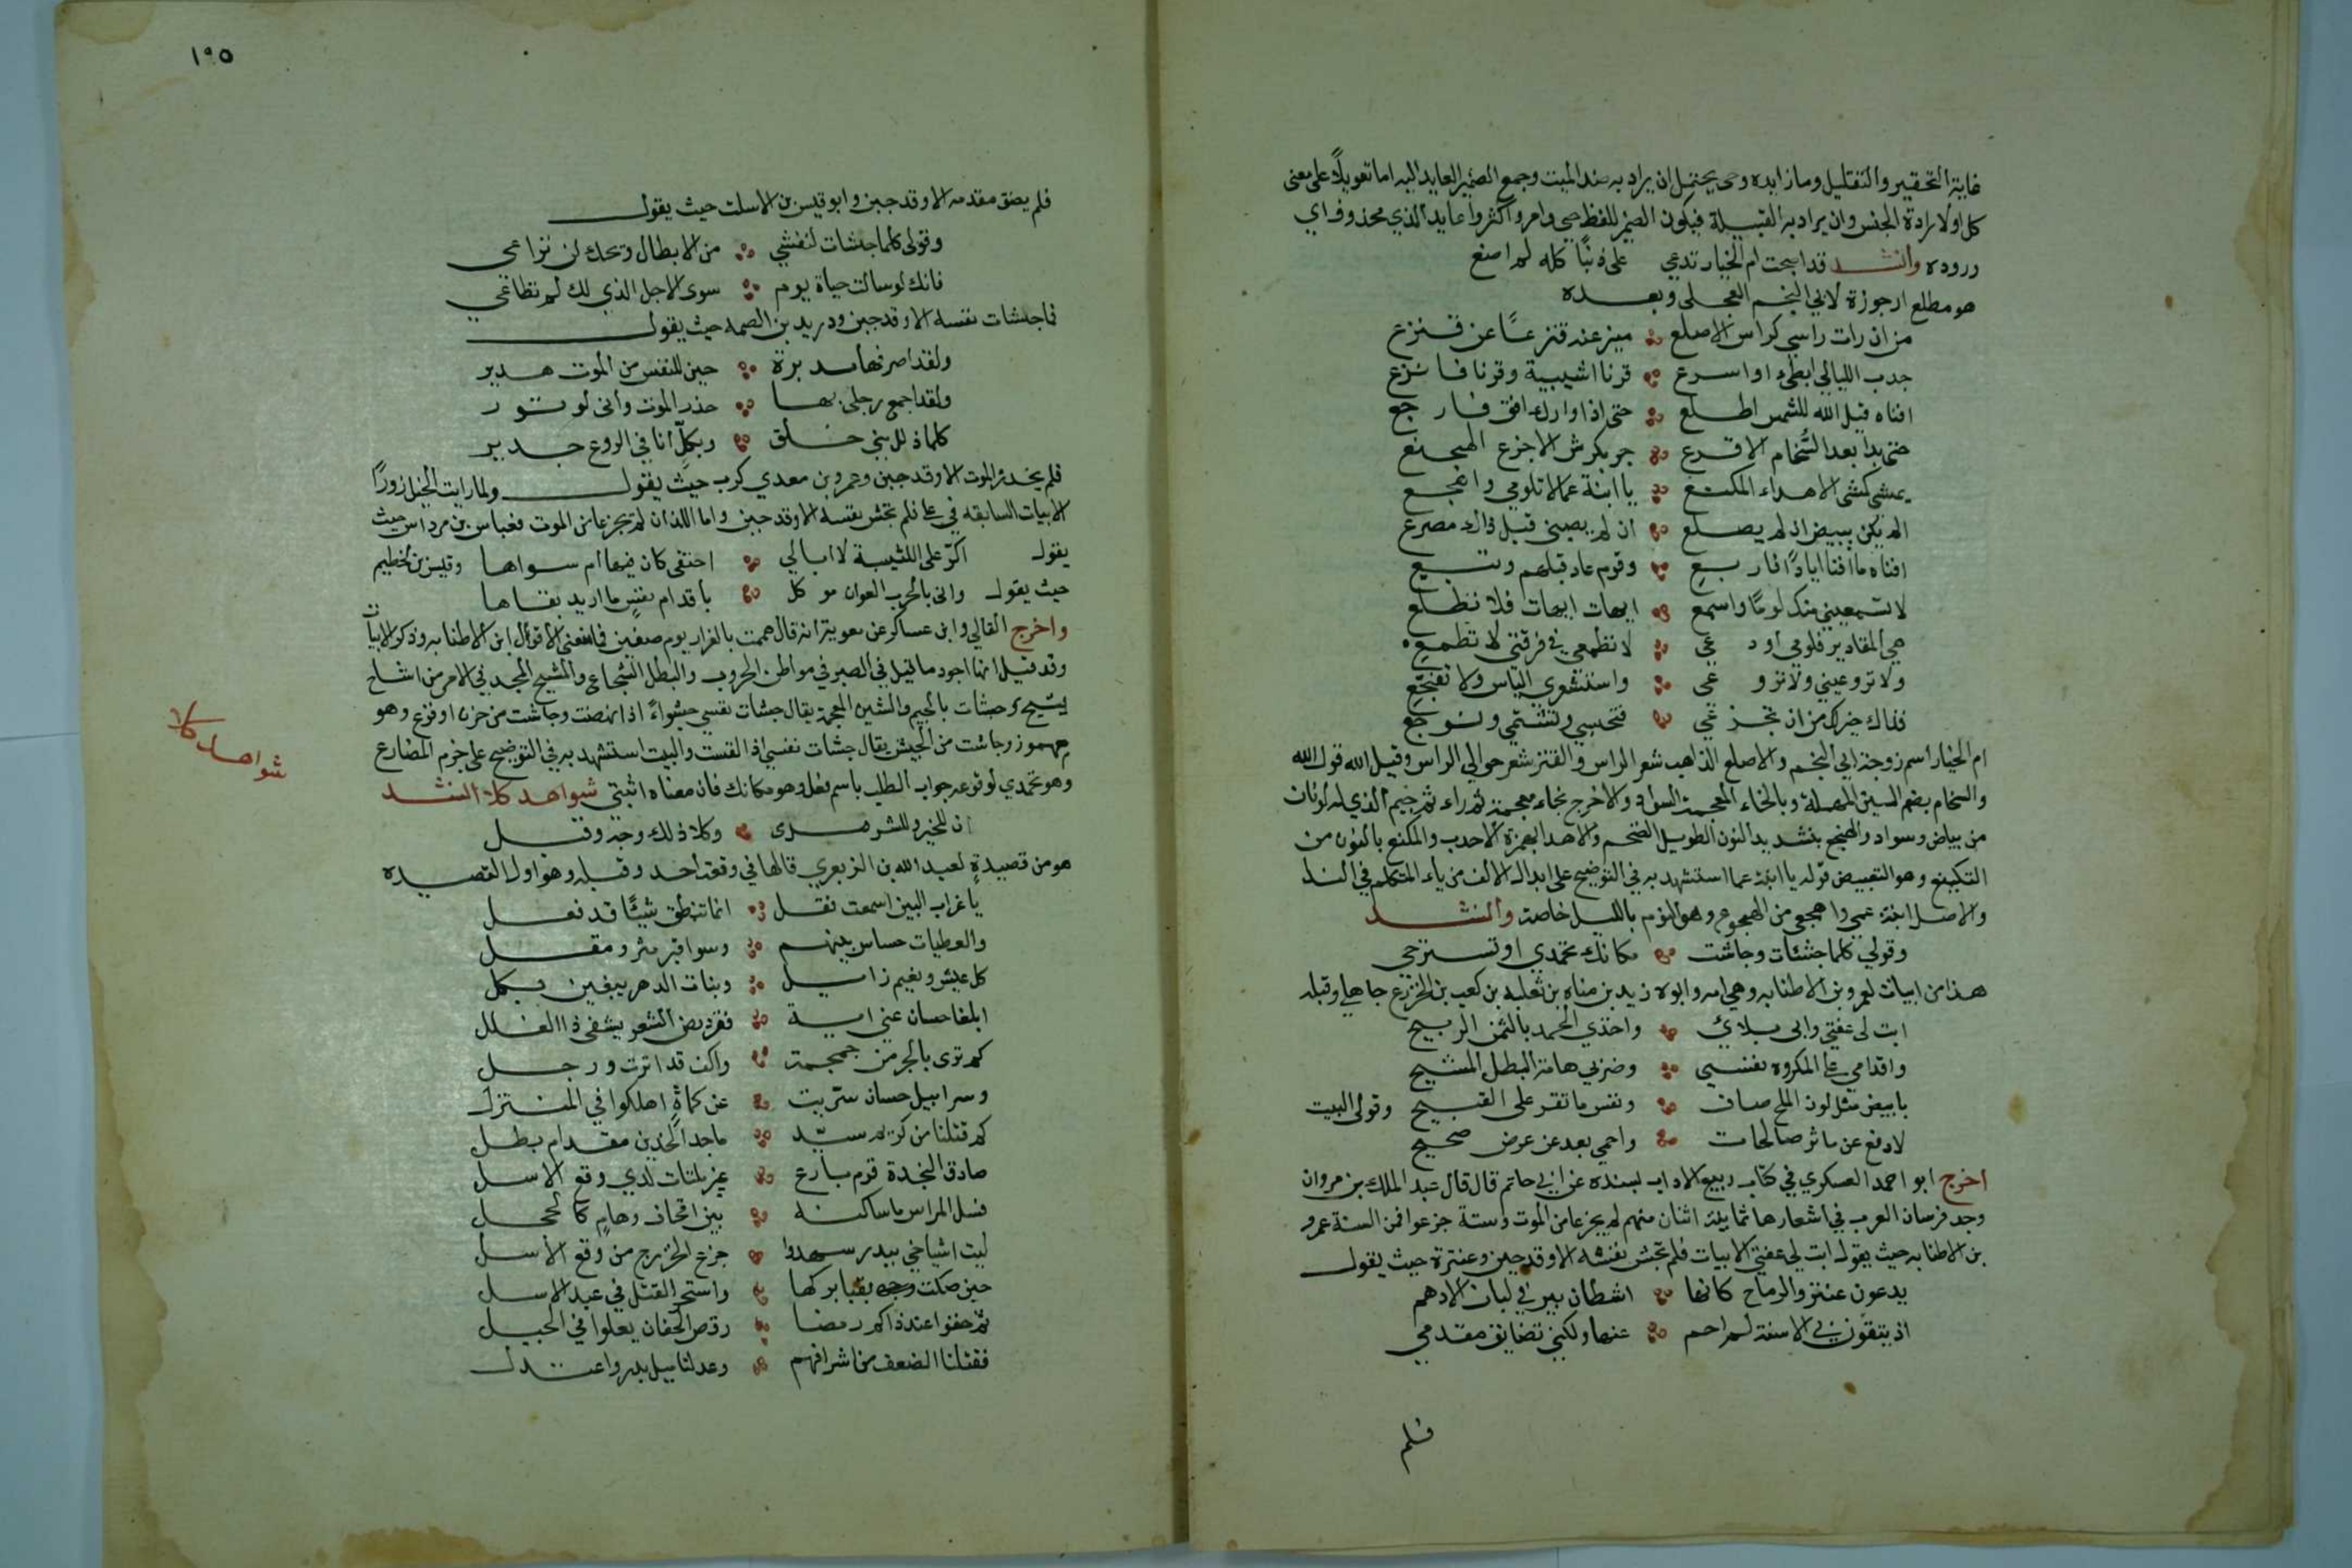 غاية التحقير والتقليل وما زايده وحى يحتمل ان يراد به ضد الميت وجمع الضمير العايد اليه اما تعويلًا على معنى
كل اولا رادة الجنس وان يراد به القبيلة فيكون الضمير للفظ حى وامر واكثروا عايد الذي محذوف اي
دروده وانشد قد اصبحت ام الخيار تدعي على ذنبًا كله لم اصنع
هو مطلع ارجوزة لابي النجم العجلى وبعده
من ان رات راسي كراس الاصلع ميز عنه قنزعًا عن قنزع
جدب الليالي ابطىء او اسرع قرنا اشيبية وقرنا فانزع
افناه قيل الله للشمس اطلع حتى اذا واراك افق فارجع
حتى بدا بعد السُّخام الاقرع
يمشي كمشى الاهداء المكنع يا ابنة عما لا تلومي واهجع
الم يكن يبيض ان لم يصلع ان لم يصبنى قبل ذاك مصرع
افناه ما افنا ايادًا فاربع وقوم عاد قبلهم وتبع
لا تسمعيني منك لومًا واسمع ايهات ايهات فلا تطلع
هي المقادير فلومي او دعي لا تطمعي في فرقتي لا تطمعي
ولا تروعيني ولا تروعى واستشوري الياس ولا تفجع
فذاك خير لك من ان تجزعي فتحسبي وتشتمي وتوجع
ام الخيار اسم زوجة ابي النجم والاصلع الذاهب شعر الراس والقنزع شعر حوالي الراس وقيل الله قول الله
والسخام بضم السين المهملة وبالخاء المعجمة السواد والاخرج بخاء معجمة ثم راء ثم جيم الذي له لونان
من بياض وسواد والهجنع بتشديد النون الطويل الضخم والاهداء بهمزة الاحدب والمكنع بالنون من
التكنيع وهو التقبيض قوله يا ابنة عما استشهد به في التوضيح على ابدال الالف من ياء المتكلم في الندا
والاصل ابنة عمي واهجعي من الهجوع وهو النوم بالليل خاصة وانشد
وقولي كلما جشئات وجاشت مكانك تحمدي او تستريحي
هذا من ابيات لعمرو بن الاطنابه وهي امه وابوه زيد بن مناه بن ثعلبه بن كعب بن الخزرج جاهلي وقبله
ابت لى عفتي وابى بلائي واخذي الحمد بالثمن الربيح
واقدامي على المكروه نفسي وضربي هامة البطل المشيح
بابيض مثل لون الملح صاف ونفس ما تقر على القبيح وقولى البيت
لادفع عن ماثر صالحات واحمي بعد عن عرض صحيح
اخرج ابو احمد العسكري في كتاب ربيع الاداب بسنده عن ابي حاتم قال قال عبد الملك بن مروان
وجد فرسان العرب في اشعارها ثمانية اثنان منهم لم يجزعا من الموت وستة جزعوا فمن الستة عمرو
بن الاطنابه حيث يقول ابت لي عفتي الابيات فلم تجش نفسه الا وقد جبن وعنترة حيث يقول
يدعون عنتر والرماح كانها اشطان بير في لبان الادهم
اذ يتقون بي الاسنة لم احم عنها ولكني تضايق مقدمي
فلم
١٩٥
فلم يضق مقدمه الا وقد جبن وابو قيس بن الاسلت حيث يقول
وقولى كلما جشات لنفسي من الابطال ويحك لن تراعى
فانك لو سالت حياة يوم سوى الاجل الذي لك لم تطاعي
فما جشات نفسه الا وقد جبن ودريد بن الصمه حيث يقول
ولقد اصرفها مدبرة حين للنفس من الموت هدير
ولقد اجمع رجلى بها حذر الموت وانى لوتور
كلما ذلل مني خلق وبكلّ انا في الروع جدير
فلم يحذر الموت الا وقد جبن وعمرو بن معدي كرب حيث يقول ولما رايت الخيل زورًا
الابيات السابقه في على فلم تجش نفسه الا وقد جبن واما اللذان لم يجزعا من الموت فعباس بن مرداس حيث
يقول اكرّ على الكتيبة لا ابالي احتفى كان فيها ام سواها وقيس بن الخطيم
حيث يقول وانى بالحرب العوان موكل باقدام نفسٍ ما اريد بقاها
واخرج القالي وابن عساكر عن معوية انه قال هممت بالفرار يوم صفين فما منعني الا قول ابن الاطنابه وذكر الابيات
وقد قيل انها اجود ما قيل في الصبر في مواطن الحروب والبطل الشجاع والمشيح المجد في الامر من اشاح
يشيح وجشات بالجيم والشين المعجمة يقال جشات نفسي جشواءً اذا نهضت وجاشت من حزن او فزع وهو
مهموز وجاشت من الجيش يقال جشات نفسي اذا لقست والبيت استشهد به في التوضيح على جزم المضارع
وهو تحمدي لوقوعه جواب الطلب باسم فعل وهو مكانك فان معناه اثبتي شواهد كلا انشد
شواهد كلا
ان للخير وللشر مدى وكلا ذلك وجه وقبل
هو من قصيدةٍ لعبد الله بن الزبعري قالها في وقعة أحد وقبله وهو اول القصيده
يا غراب البين اسمعت نقل انما تنطق شيئًا قد فعل
والعطيات حساس بينهم وسوا قبر مثر ومقل
كل عيش ونعيم زايل وبنات الدهر يبغين بكل
ابلغا حسان عني اية فقريض الشعر يشفى ذا الغلل
كم ترى بالجر من جمجمة واكف قد اترت ورجل
وسرابيل حسان سرّيت عن كماةٍ اهلكوا في المنتزل
كم قتلنا من كريم سيّد ماجد الجدين مقدام بطل
صادق النجدة قرم بارع غير ملتاث لدي وقع الاسل
فسل المهراس ما ساكنه بين اقحاف وهامٍ كالحجل
ليت اشياخي ببدر شهدوا جزع الخزرج من وقع الاسل
حين حكت بقبا بركها واستحر القتل في عبد الاسل
ثم خفوا عند ذاكم رقصا رقص الحفان يعلوا في الجبل
فقتلنا الضعف من اشرافهم وعدلنا ميل بدر واعتدل